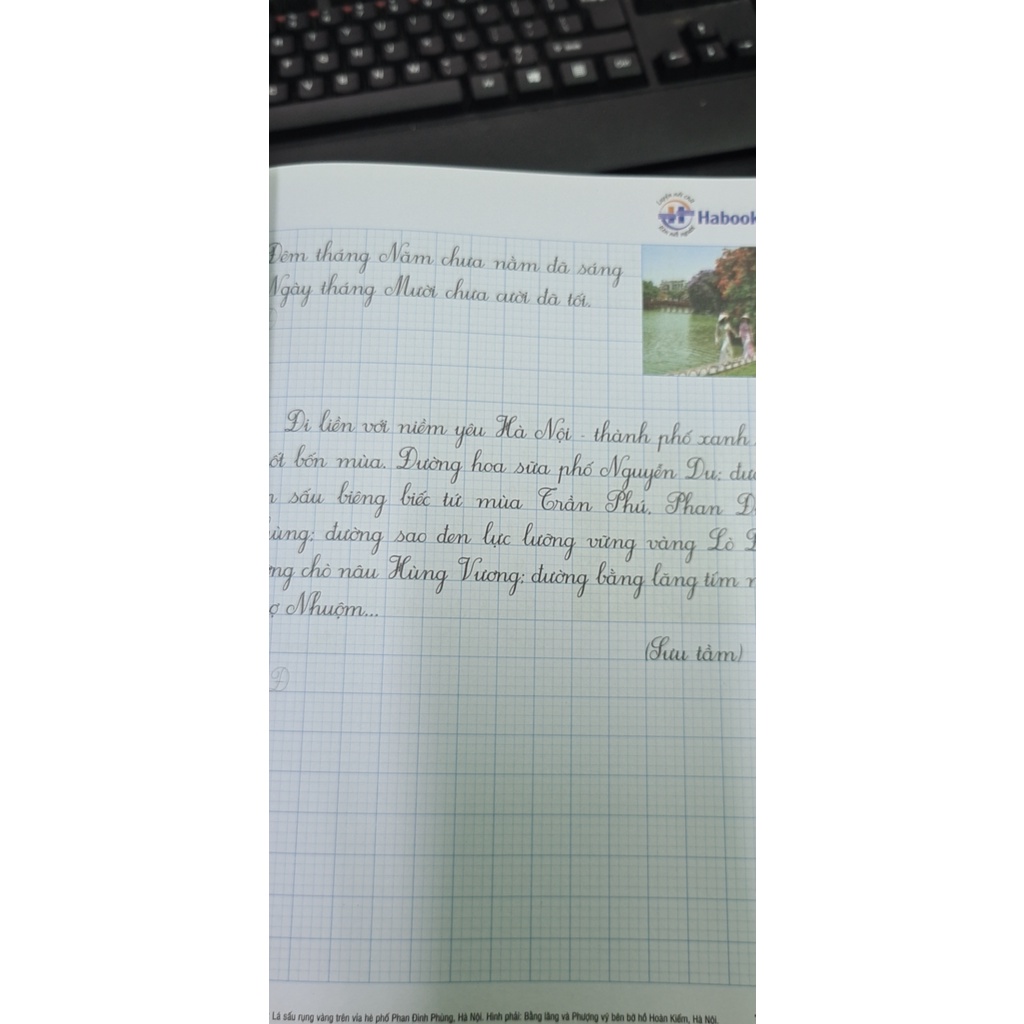 Habook
Đêm tháng Năm chưa nằm đã sáng
Ngày tháng Mười chưa cười đã tối.
Đi liền với niềm yêu Hà Nội - thành phố xanh
bốn mùa. Đường hoa sữa phố Nguyễn Du; đư
sấu biêng biếc tứ mùa Trần Phú, Phan
ùng; đường sao đen lực lưỡng vững vàng Lò
ng chò nâu Hùng Vương; đường bằng lăng tím
ợ Nhuộm...
(Sưu tầm)
Đ
Lá sấu rụng vàng trên vỉa hè phố Phan Đình Phùng, Hà Nội. Hình phải: Bằng lăng và Phượng vỹ bên bờ hồ Hoàn Kiếm, Hà Nội.